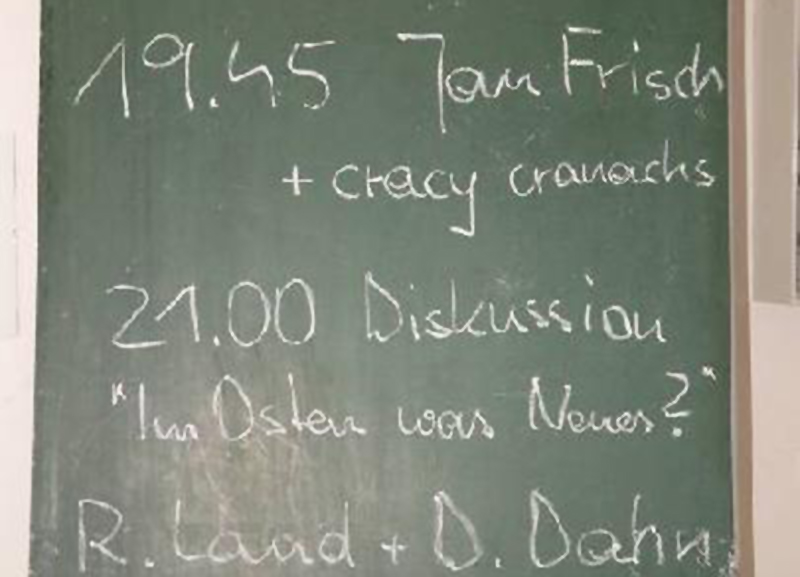 19.45 Jan Frisch
+ cracy cranachs
21.00 Diskussion
"Im Osten was Neues?"
R. Land + D. Dahn